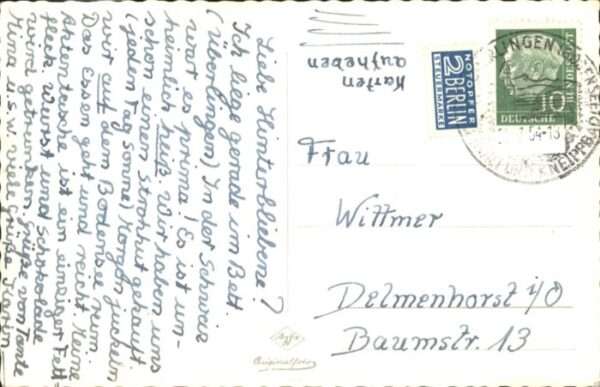 Liebe Hinterbliebene!
Ich liege gerade im Bett.
(Überlingen) In der Schweiz
war es prima! Es ist un-
heimlich heiß. Wir haben uns
schon einen Strohhut gekauft
(jeden Tag Sonne) Morgen juckeln
wir auf dem Bodensee rum.
Das Essen geht und reicht. Meine
Aktentasche ist ein einziger Fett
fleck. Wurst und Schokolade
wird getrunken. Grüße von Tante
Mima u.s.w. viele Grüße Karin
Karten
aufheben
NOTOPFER
2 BERLIN
STEUERMARKE
10
DEUTSCHE
BUNDESPOST
54-18
Frau
Wittmer
Delmenhorst i/O
Baumstr. 13
Agfa
Originalfoto